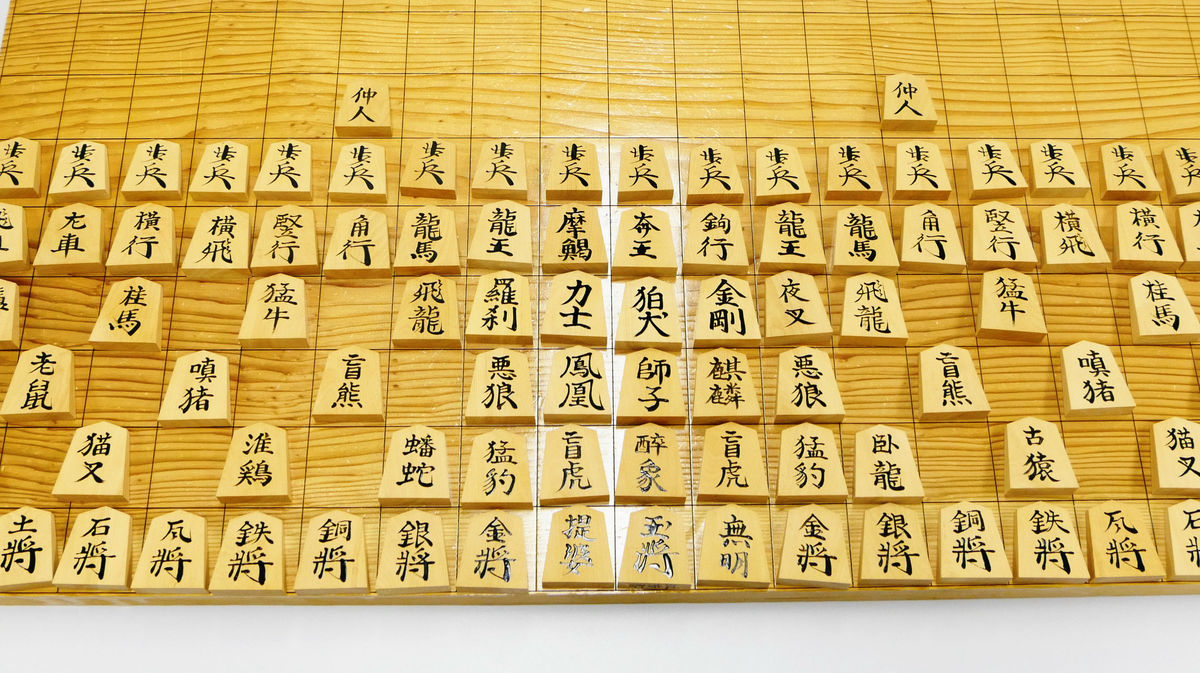 仲人 仲人
歩兵 歩兵 歩兵 歩兵 歩兵 歩兵 歩兵 歩兵 歩兵 歩兵 歩兵 歩兵 歩兵 歩兵 歩兵 歩兵 歩兵 歩兵
尢車 横行 横飛 竪行 角行 龍馬 龍王 摩𩹄 奔王 鉤行 龍王 龍馬 角行 竪行 横飛 横行
桂馬 猛牛 飛龍 羅刹 力士 狛犬 金剛 夜叉 飛龍 猛牛 桂馬
老鼠 嗔猪 盲熊 悪狼 鳳凰 師子 麒麟 悪狼 盲熊 嗔猪
猫叉 淮鶏 蟠蛇 猛豹 盲虎 酔象 盲虎 猛豹 臥龍 古猿 猫叉
土将 石将 瓦将 鉄将 銅将 銀将 金将 提婆 玉将 無明 金将 銀将 銅将 鉄将 瓦将 石将